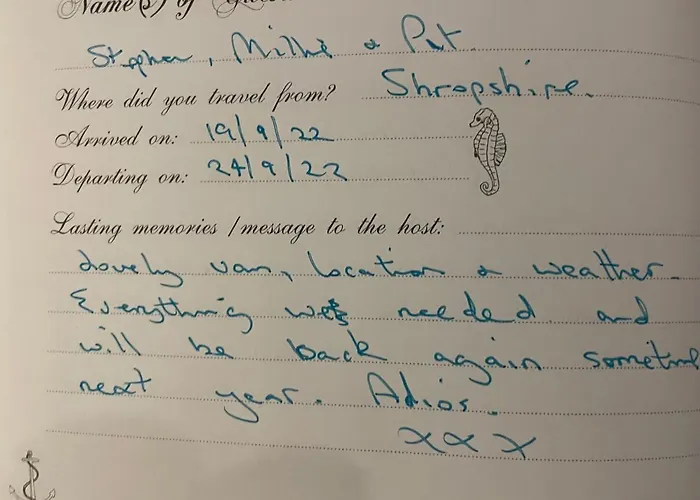 Name(s) of
Stephen, Millie & Pat
Where did you travel from? Shropshire.
Arrived on: 19/9/22
Departing on: 24/9/22
Lasting memories / message to the host:
Lovely van, location & weather.
Everything we needed and
will be back again sometime
next year. Adios.
xxx